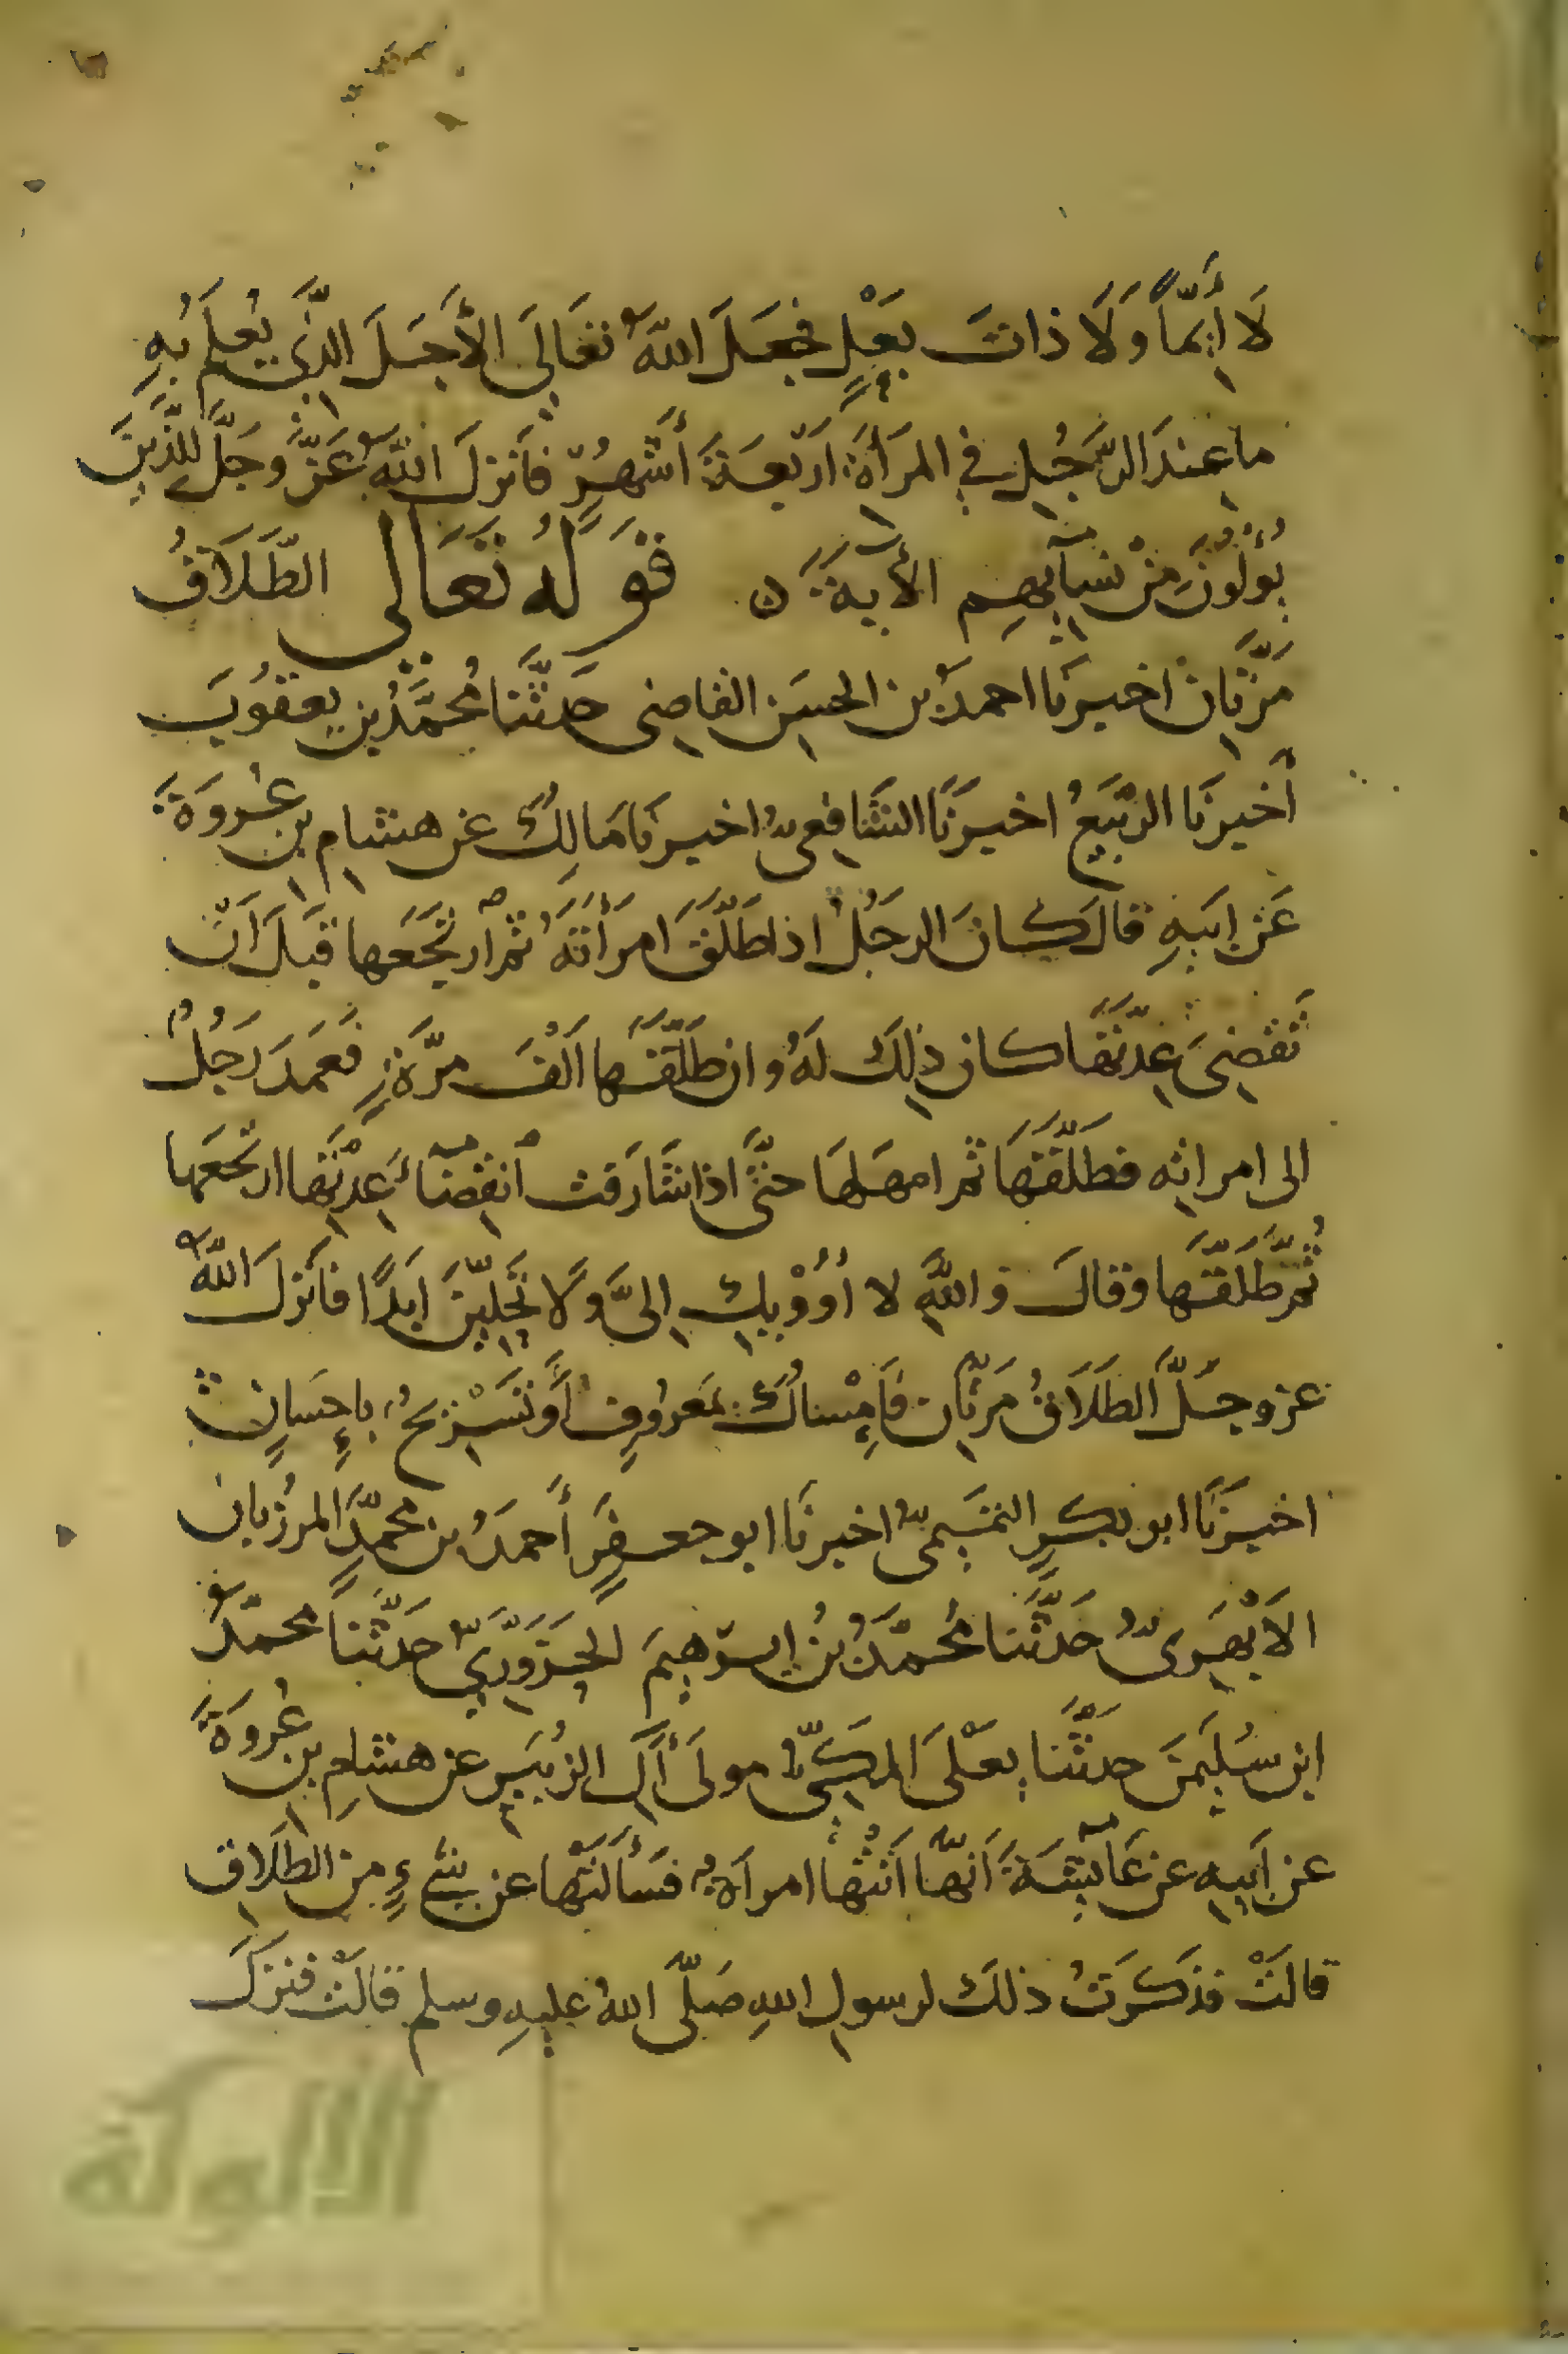 لَا أَيِّمًا وَلَا ذاتَ بَعْلٍ فجعَلَ اللَّهُ تعَالَى الأَجَلَ الَّذي يُعلَم بِهِ
ما عندَ الرَّجُلِ في المرَأَةِ اَربَعةَ أَشهُرٍ فاَنزلَ اللَّهُ عَزَّ وجَلَّ للَّذينَ
يُؤلُونَ مِنْ نسآيهِم الأيةَ ن قَولُه تَعَالى الطَّلَاقُ
مَرَّتَانِ اخبرَنا احمدُ بن الحسَن القاضِى حَدثَّنا مُحمَّدُ بن يعقوُبَ
أخبرنَا الرَّبيعُ اخبَرَنَا الشَّافِعىُّ اخبرَنا مَالِكٌ عن هشامِ بن عُروَةَ
عَن ابَيهِ قالَ كانَ الرجَلُ اذا طَلَّقَ امرَأَتَهُ ثم ارتجَعَها قبَلَ اَنْ
تَقضِىَ عِدَّتَهَا كان ذلِكَ لَهُ وان طَلَّقَها اَلفَ مرَّةٍ فعَمَدَ رَجُلٌ
الى امراتِه فطَلَّقَهَا ثم امهَلهَا حتَّى اذا شَارَفت اَنقِضآءَ عِدَّتِها ارتجعَها
ثُمَّ طَلَّقَها وقالَ واللَّهِ لا أُؤْوِيكِ اِلىَّ وَلَا تَحِلِّينَ اَبَدًا فاَنزلَ اللَّهُ
عز وجَلَّ الطَلَاقُ مَرتّانِ فَاِمْساكٌ بمَعرُوفٍ أَو تَسْرِيحٌ باِحسَانٍ
اخبَرَنَا ابو بكرٍ التمَيمىُّ اخبرنَا ابو جعفَرٍ أَحمَدُ بن محمَّدٍ المرزُبان
الاَبْهَرىُّ حَدَّثَنا مُحمَّدُ بنُ ابرَهيمَ الحَزَوَّرِيّ حَدَّثَنا محمَّدُ
ابن سُليَمنَ حدثَّنا يعَلَى المكِّىُّ مولَى آلَ الزبُيَرِ عن هشامِ بن عُروَةَ
عن اَبيهِ عن عَآيشَةَ اَنَّها اَتَتْها امراَةٌ فسَأَلتَها عن شَىءٍ مِن الطلَاقِ
قالَتْ فذَكَرتُ ذلكَ لرسولِ اللهِ صَلَّى اللهُ عليهِ وسلم قالَتْ فنزلَ
الألوكة